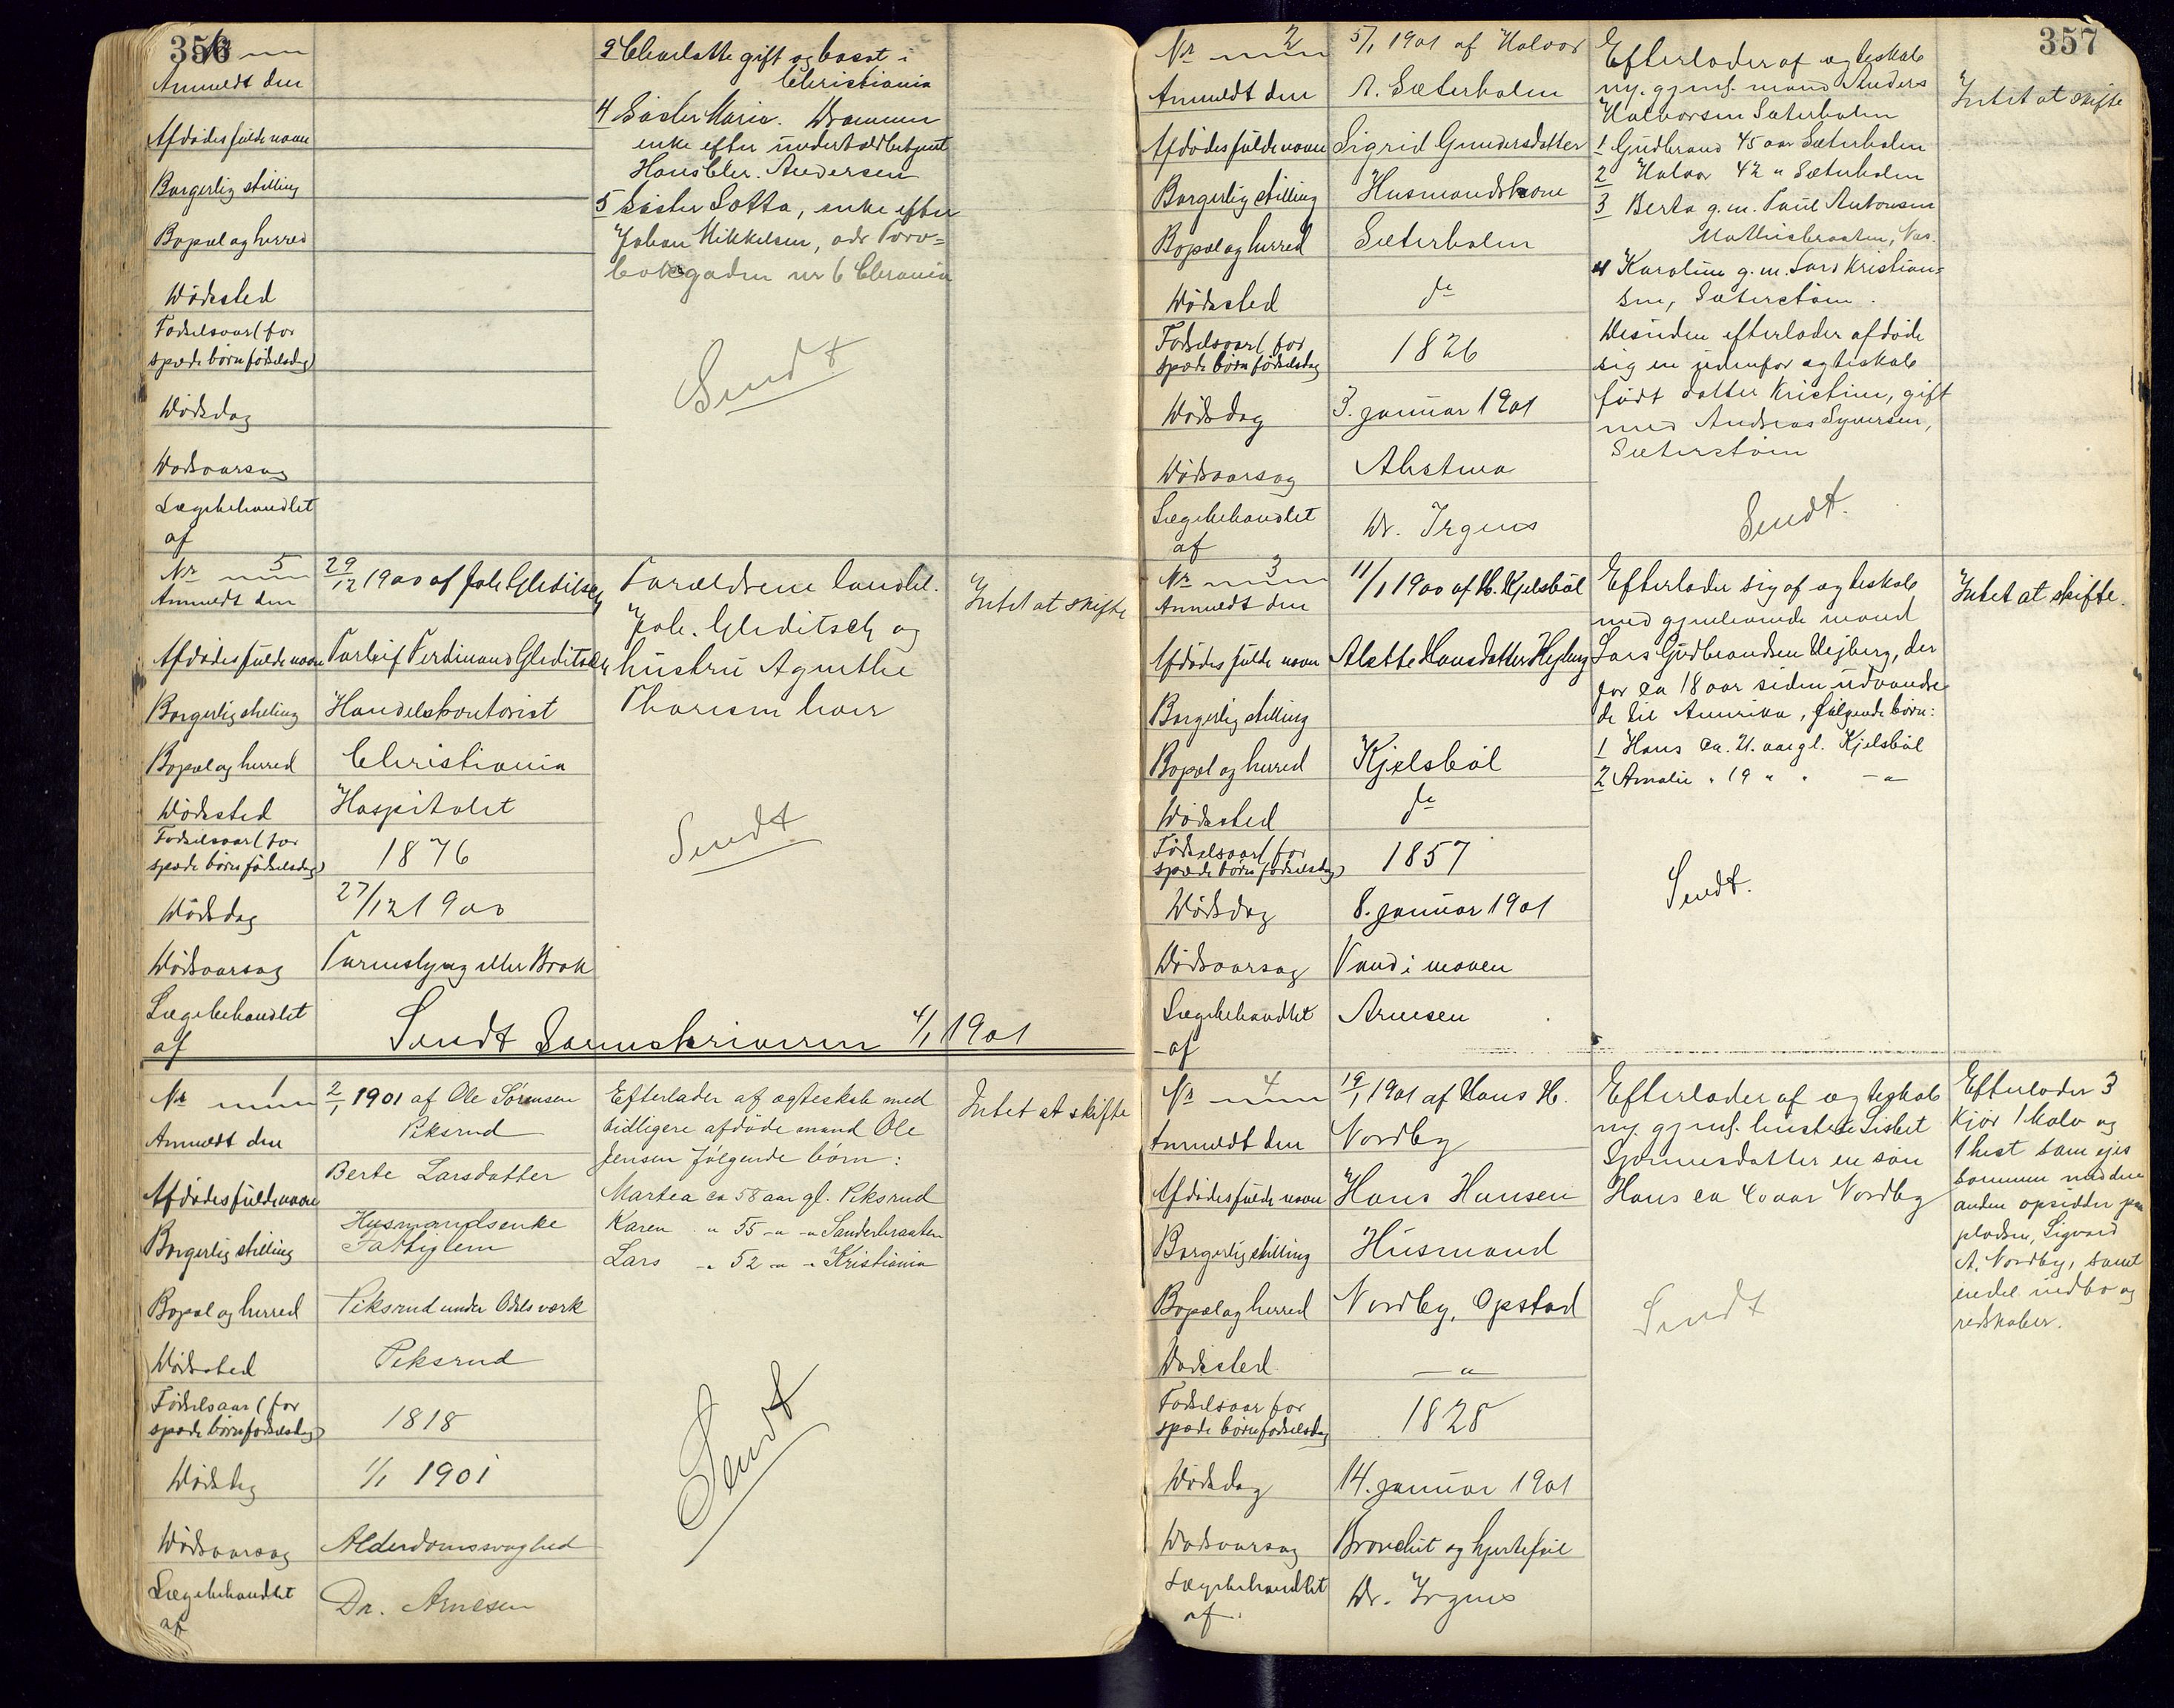 356
Nr
Anmeldt den
Afdødes fulde navn
Borgerlig stilling
Bopæl og herred
Dødssted
Fødselsaar (for
spæde børn fødselsdag)
Dødsdag
Dødsaarsag
Lægebehandlet
af
Charlotte gift og bosat i
Christiania
4 Søster Maria. Drammen
enke efter underfoldbetjent
Hans Chr. Andersen
5 Søster Lotta, enke efter
Johan Mikkelsen, adr
gaden nr 6 Chrania
Sendt
Nr 5
Anmeldt den
29/12 1900 af Joh Gleditsch
Afdødes fulde navn Torleif Ferdinand Gleditsch
Borgerlig stilling Handelskontorist
Bopæl og herred Christiania
Dødssted Hospitalet
Fødselsaar (for
spæde børn fødselsdag) 1876
Dødsdag 27/12 1900
Dødsaarsag Tarmslyng eller Brok
Lægebehandlet
af
Forældrene landh.
Joh. Gleditsch og
hustru Agnethe
Thoresen
Sendt
Intet at skifte
Sendt Sorenskriveren 4/1 1901
Nr 1
Anmeldt den
2/1 1901 af Ole Sørensen
Piksrud
Afdødes fulde navn Berte Larsdatter
Borgerlig stilling Husmandsenke
Fattiglem
Bopæl og herred Piksrud under Odals værk
Dødssted Piksrud
Fødselsaar (for
spæde børn fødselsdag) 1818
Dødsdag 1/1 1901
Dødsaarsag Alderdomssvaghed
Lægebehandlet
af Dr. Arnesen
Efterlader af ægteskab med
tidligere afdøde mand Ole
Jensen følgende børn:
Martea ca 58 aar gl. Piksrud
Karen " 55 " " Sanderbraaten
Lars " 52 " " Kristiania
Sendt
Intet at skifte
357
Nr 2
Anmeldt den
5/1 1901 af Halvor
A. Sæterholm
Afdødes fulde navn Sigrid Gundersdatter
Borgerlig stilling Husmandskone
Bopæl og herred Sæterholm
Dødssted do
Fødselsaar (for
spæde børn fødselsdag 1826
Dødsdag 3. januar 1901
Dødsaarsag Ahstma
Lægebehandlet
af Dr. Irgens
Efterlader af ægteskab
m. gjenl. mand Anders
Halvorsen Sæterholm
1 Gudbrand 45 aar Sæterholm
2 Halvor 42 " Sæterholm
3 Berta g. m. Paul Antonsen
Mathisbraaten, Næs.
4 Karoline g. m. Lars Kristian=
sen, Sæterstøen.
Desuden efterlader afdøde
sig en udenfor ægteskab
født datter Kristine, gift
med Andreas Syversen,
Sæterstøen
Sendt.
Intet at skifte
Nr 3
Anmeldt den
11/1 1900 af H. Kjelsbøl
Afdødes fulde navn Alette Hansdatter Hejberg
Borgerlig stilling
Bopæl og herred Kjelsbøl
Dødssted do
Fødselsaar (for
spæde børn fødselsdag) 1857
Dødsdag 8. januar 1901
Dødsaarsag Vand i maven
Lægebehandlet
af Arnesen
Efterlader sig af ægteskab
med gjenlevende mand
Lars Gudbrandsen Hejberg, der
for ca 18 aar siden udvandre
de til Amerika, følgende børn:
1 Hans ca. 21. aar gl. Kjelsbøl
2 Amalie " 19 " " — "
Sendt.
Intet at skifte.
Nr 4
Anmeldt den
19/1 1901 af Hans H.
Nordby
Afdødes fulde navn Hans Hansen
Borgerlig stilling Husmand
Bopæl og herred Nordby, Opstad
Dødssted — "
Fødselsaar for
spæde børn fødselsdag 1828
Dødsdag 14. januar 1901
Dødsaarsag Bronchit og hjertefeil
Lægebehandlet
af. Dr. Irgens
Efterlader af ægteskab
m. gjenl. hustru Lisbet
en søn
Hans ca 40 aar Nordby
Sendt
Efterlader 3
kjør 1 kalv og
1 hest som ejes
sammen med den
anden opsidder paa
pladsen, Sigvard
A. Nordby, samt
endel indbo og
redskaber.